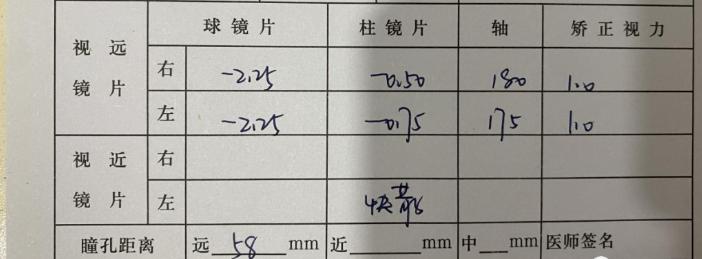 球镜片 柱镜片 轴 矫正视力
视远镜片 右 -2.25 -0.50 180 1.0
左 -2.25 -0.75 175 1.0
视近镜片 右
左 快散
瞳孔距离 远 58 mm 近 mm 中 mm 医师签名